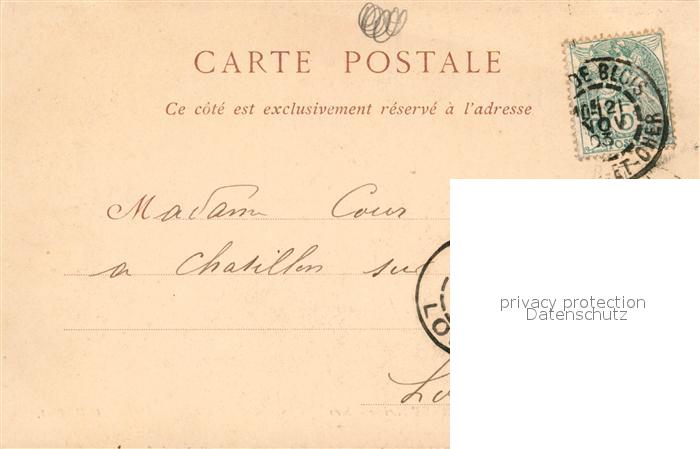 CARTE POSTALE
Ce côté est exclusivement réservé à l'adresse
DE BLOIS
21
NOV
03
ET-CHER
POSTES
Madame Cour
a Chatillon sur
LO
Lo
privacy protection
Datenschutz